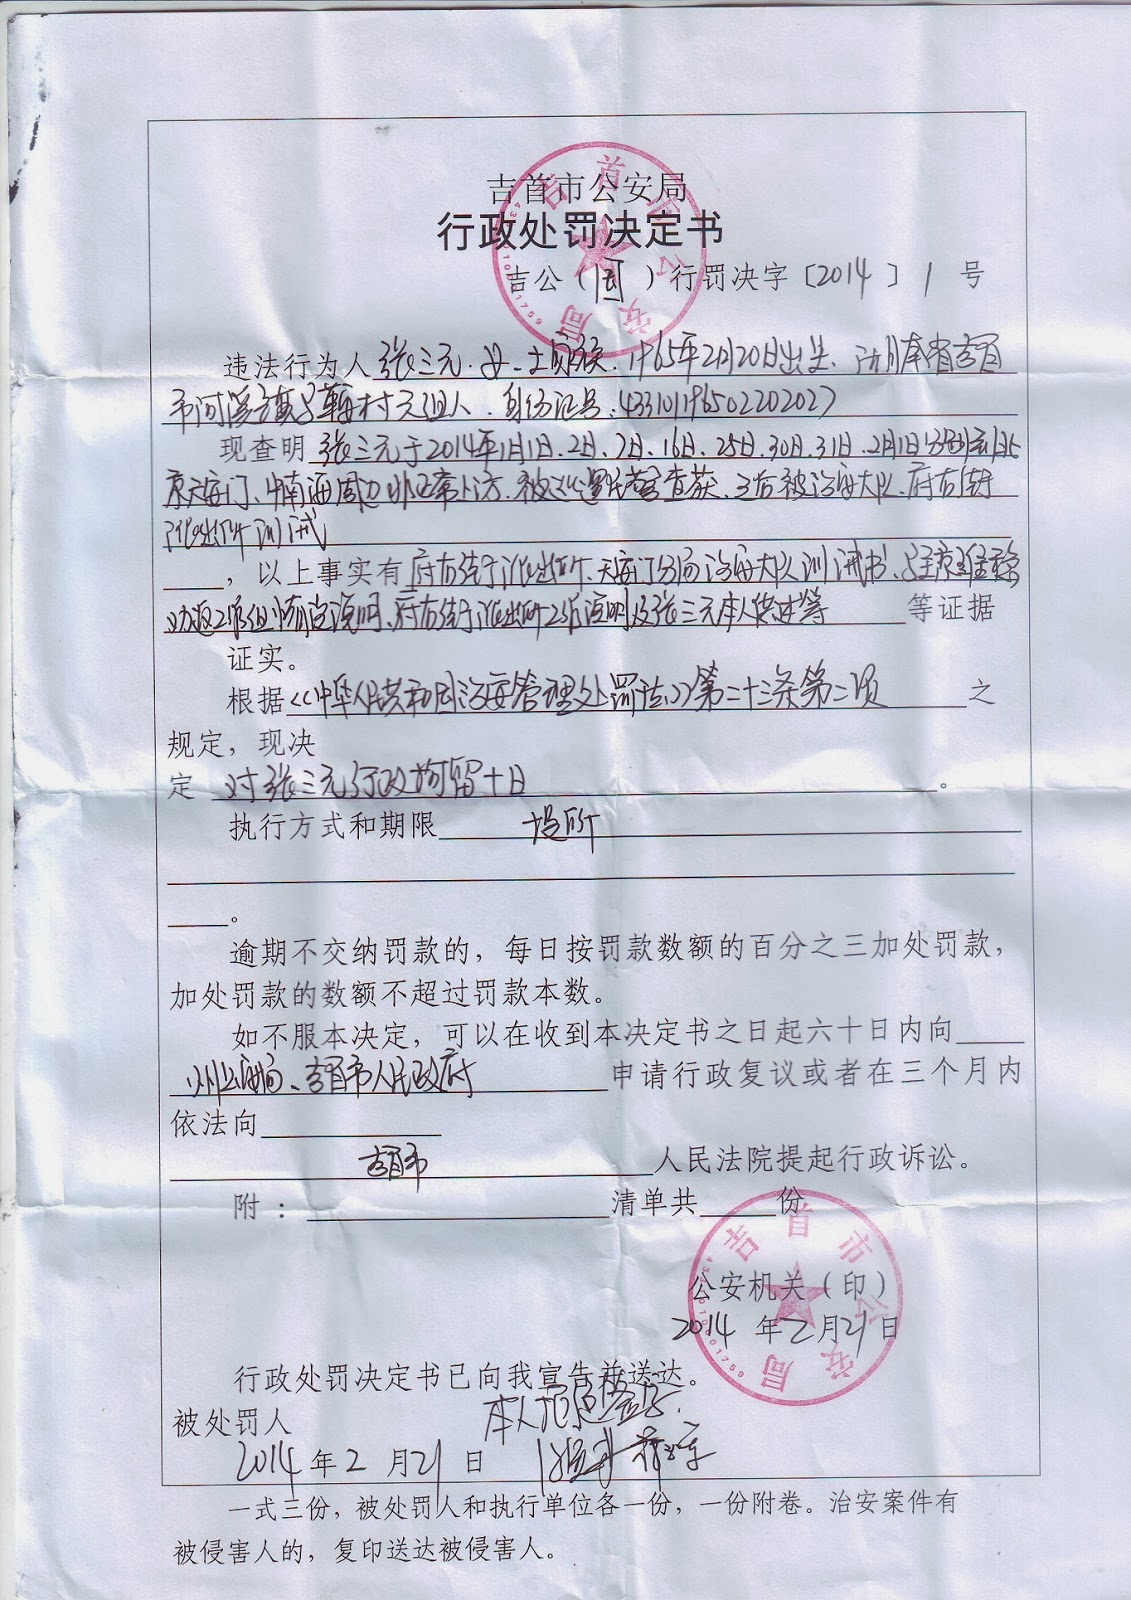 吉首市公安局
行政处罚决定书
吉公（ ）行罚决字〔2014〕1 号
违法行为人 张三元.女.土家族.1965年2月20日出生.湖南省吉首
市河溪镇 村 组人.身份证号:433101196502202027
现查明 张三元于2014年1月1日、2日、7日、16日、25日、30日、31日、2月1日分别到北
京天安门、中南海周边非正常上访.被巡逻民警查获.之后被治安大队、府右街
派出所训诫
，以上事实有 府右街派出所、天安门分局治安大队训诫书、 驻京维稳
劝返工作组情况说明、府右街派出所工作说明及张三元本人供述等 等证据
证实。
根据《中华人民共和国治安管理处罚法》第二十三条第二项 之
规定，现决
定 对张三元行政拘留十日 。
执行方式和期限 投所
。
逾期不交纳罚款的，每日按罚款数额的百分之三加处罚款，
加处罚款的数额不超过罚款本数。
如不服本决定，可以在收到本决定书之日起六十日内向
州公安局、吉首市人民政府 申请行政复议或者在三个月内
依法向
吉首市 人民法院提起行政诉讼。
附： 清单共 份
吉首市公安局
公安机关（印）
2014 年 2 月 21 日
行政处罚决定书已向我宣告并送达。
被处罚人 本人拒绝签字.
2014 年 2 月 21 日
一式三份，被处罚人和执行单位各一份，一份附卷。治安案件有
被侵害人的，复印送达被侵害人。